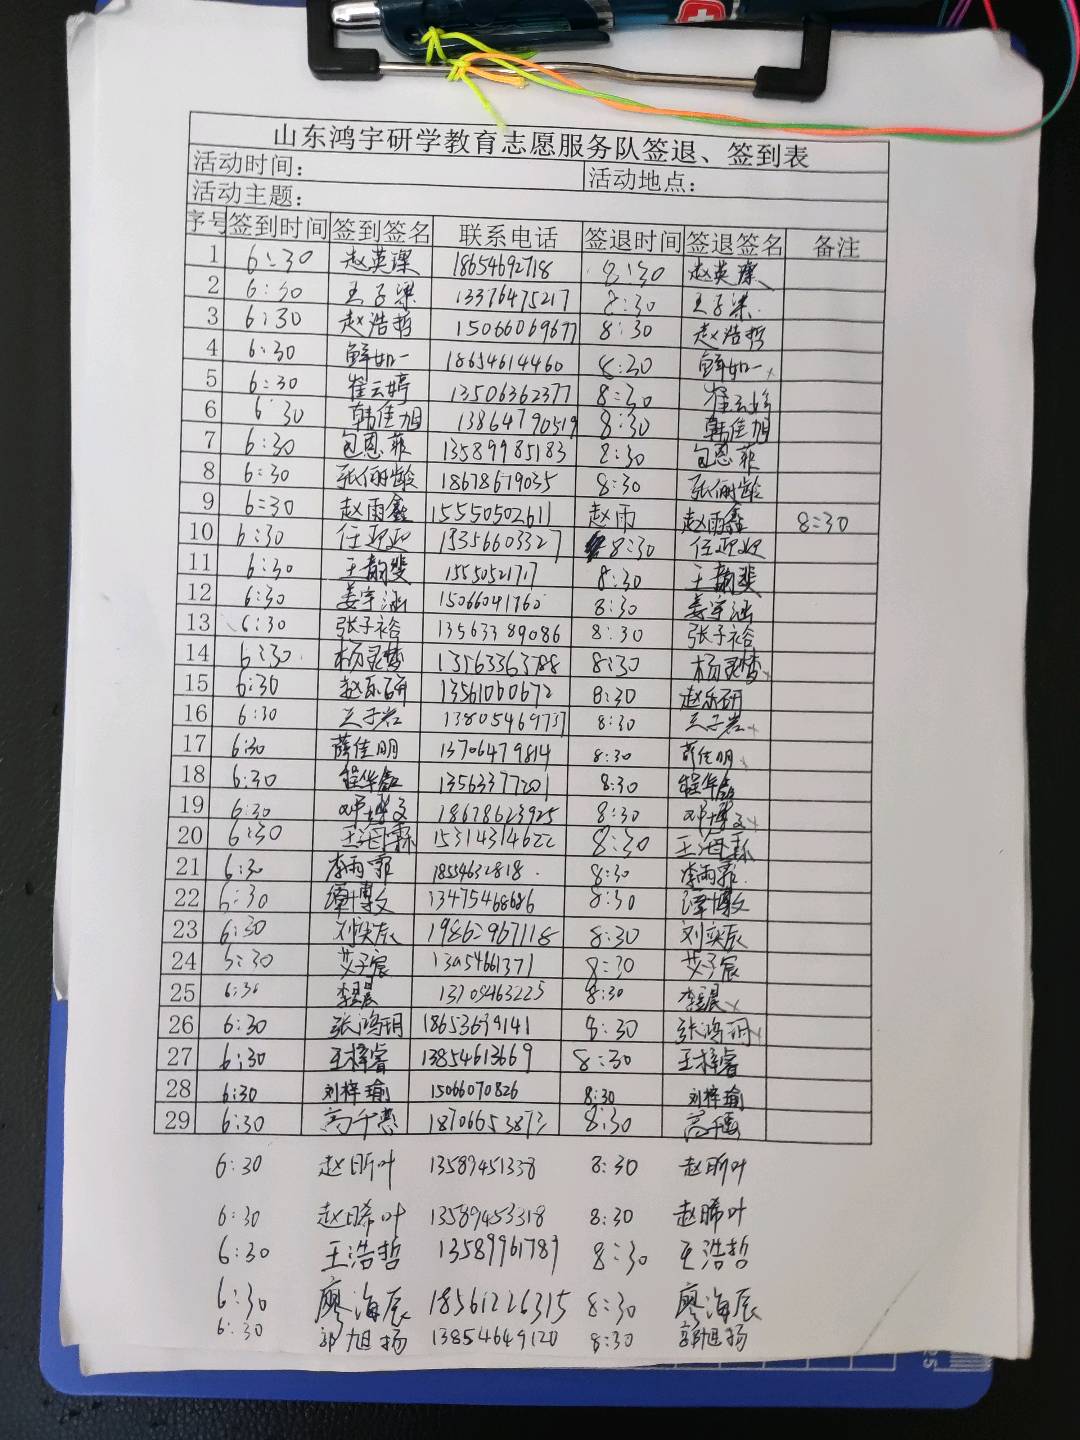 山东鸿宇研学教育志愿服务队签退、签到表
活动时间： 活动地点：
活动主题：
序号 签到时间 签到签名 联系电话 签退时间 签退签名 备注
1 6:30 赵英深 18654692718 8:30 赵英深
2 6:30 王子梁 13376475217 8:30 王子梁
3 6:30 赵浩哲 15066069677 8:30 赵浩哲
4 6:30 鲜如一 18654614460 8:30 鲜如一
5 6:30 崔云婷 13506362377 8:30 崔云婷
6 6:30 韩佳旭 13864790519 8:30 韩佳旭
7 6:30 包恩菲 13589985183 8:30 包恩菲
8 6:30 张俪龄 18678679035 8:30 张俪龄
9 6:30 赵雨鑫 15550502611 赵雨 赵雨鑫 8:30
10 6:30 任迎迎 15356603327 8:30 任迎迎
11 6:30 王韵斐 1550521717 8:30 王韵斐
12 6:30 姜宇涵 15066041760 8:30 姜宇涵
13 6:30 张子裕 13563389086 8:30 张子裕
14 6:30 杨灵梦 13563363788 8:30 杨灵梦
15 6:30 赵乐研 13561060672 8:30 赵乐研
16 6:30 王子岩 13805469737 8:30 王子岩
17 6:30 薛佳明 13706479814 8:30 薛佳明
18 6:30 程华鑫 13563377201 8:30 程华鑫
19 6:30 邓博文 18678623925 8:30 邓博文
20 6:30 王海霖 15314314622 8:30 王海霖
21 6:30 李雨霏 18554632818 8:30 李雨霏
22 6:30 谭博文 13475468686 8:30 谭博文
23 6:30 刘奕辰 19862967118 8:30 刘奕辰
24 6:30 艾子宸 13954661371 8:30 艾子宸
25 6:30 13709463225 8:30
26 6:30 张鸿玥 18653639141 8:30 张鸿玥
27 6:30 王梓睿 13854613669 8:30 王梓睿
28 6:30 刘梓瑜 15066070826 8:30 刘梓瑜
29 6:30 高千惠 18706653873 8:30 高千惠
6:30 赵昕叶 13589451338 8:30 赵昕叶
6:30 赵晞叶 13589453318 8:30 赵晞叶
6:30 王浩哲 13589961789 8:30 王浩哲
6:30 廖海辰 18561226315 8:30 廖海辰
6:30 郭旭扬 13854649120 8:30 郭旭扬